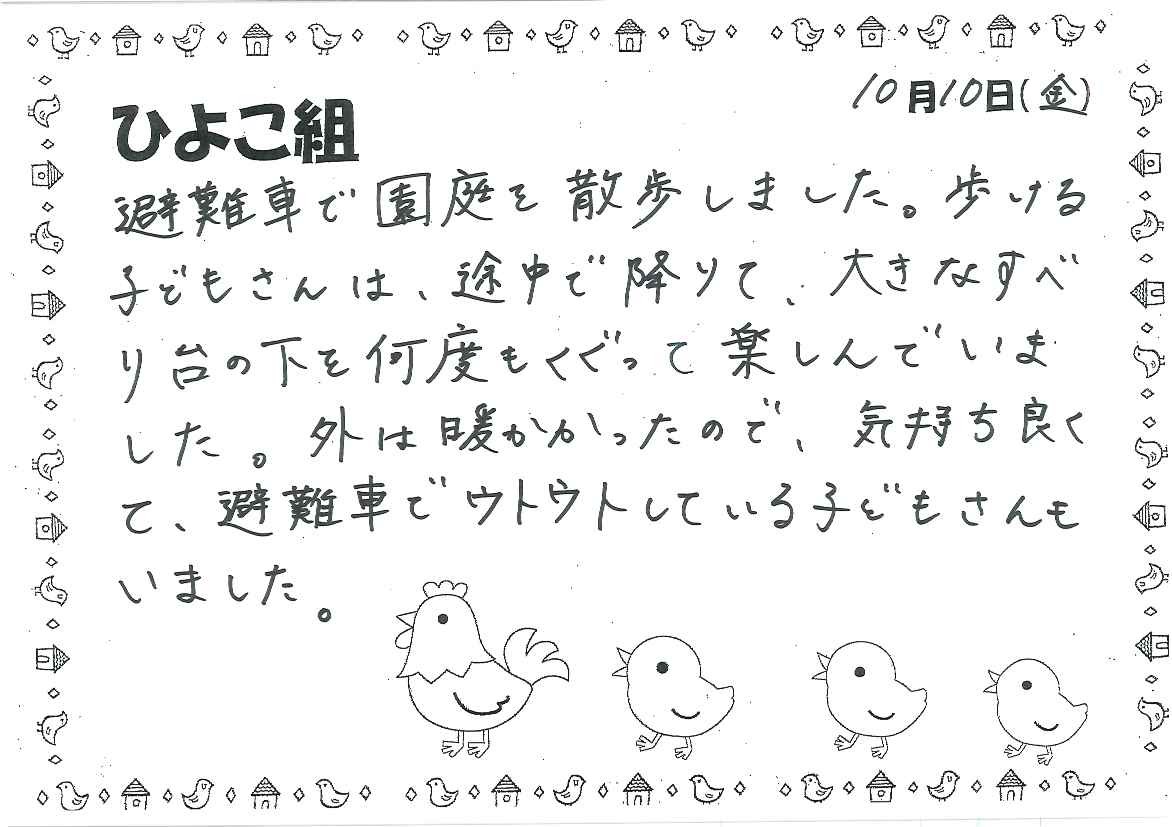 10月10日(金)
ひよこ組
避難車で園庭を散歩しました。歩ける
子どもさんは、途中で降りて、大きなすべ
り台の下を何度もくぐって楽しんでいま
した。外は暖かかったので、気持ち良く
て、避難車でウトウトしている子どもさんも
いました。